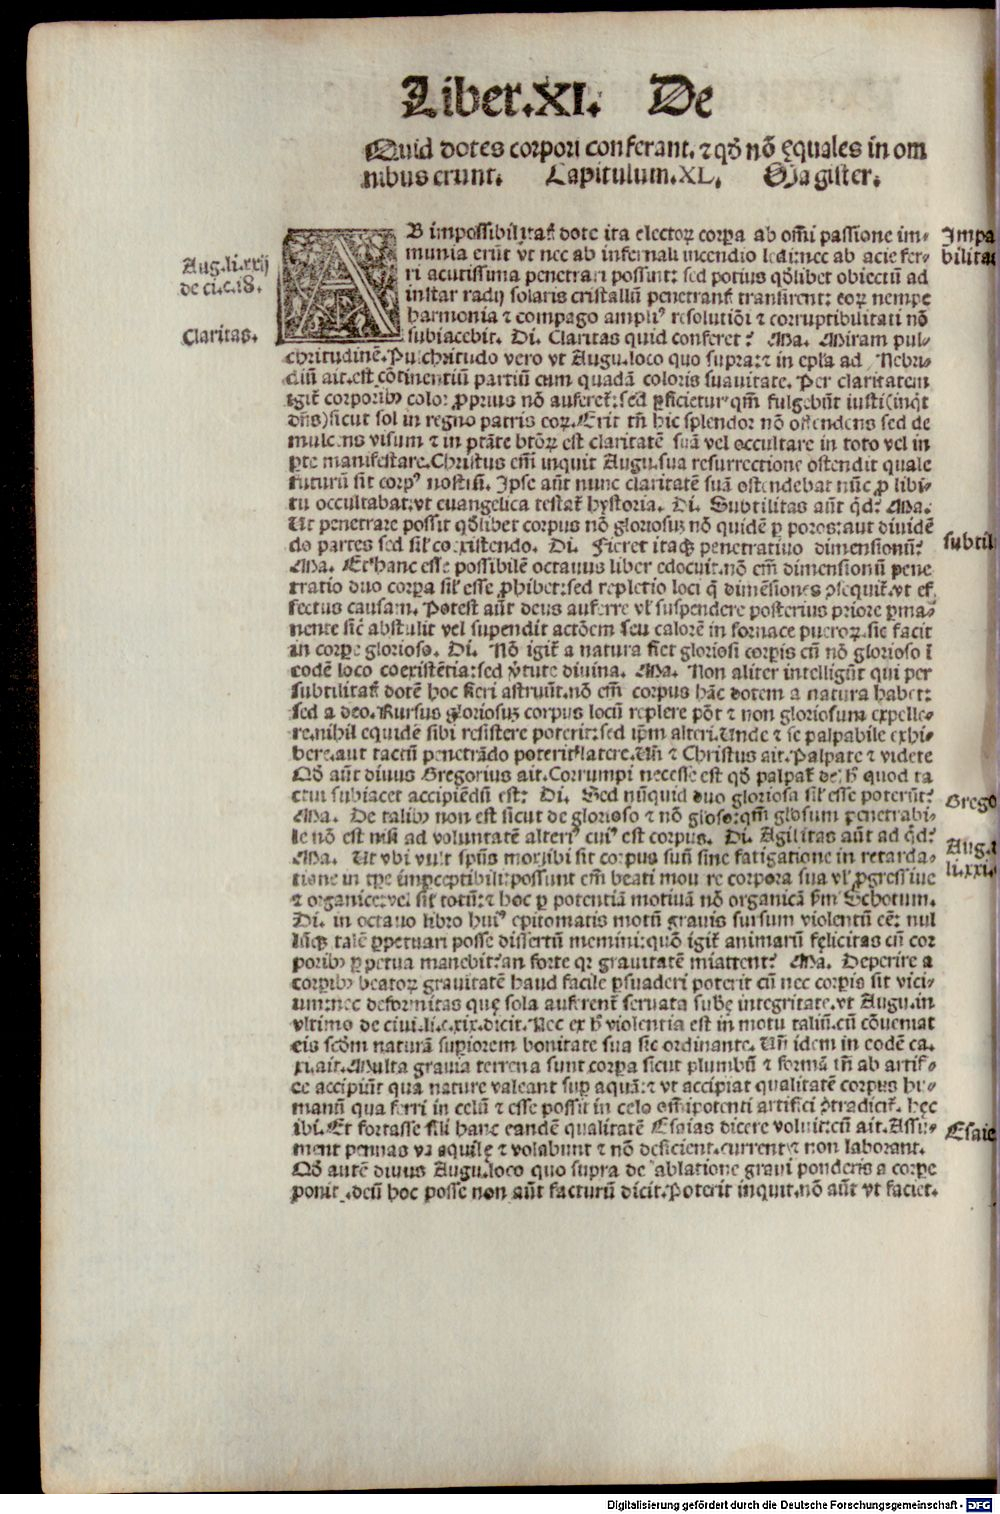 Liber.XI. De
Quid dotes corpori conferant. ⁊ qđ nõ ęquales in om
nibus erunt. Capitulum.XL. Magister.
AB impossibilitatꝭ dote ita electoꝝ corꝑa ab om̃i passione im⸗
munia erũt vt nec ab infernali incendio ledi: nec ab acie fer⸗
ri acutissima penetrari possint: sed potius qđlibet obiectũ ad
instar radij solaris cristallũ penetrantꝭ transirent: eoꝝ nempe
harmonia ⁊ compago ampliꝰ resolutiõi ⁊ corruptibilitati nõ
subiacebit. Di. Claritas quid conferet? Ma. Miram pul⸗
chritudinẽ. Pulchritudo vero vt Augu. loco quo supra: ⁊ in epl̃a ad Nebri⸗
diũ ait. est cõtinentiũ partiũ cum quadã coloris suauitate. Per claritatem
igit̃ corporibꝰ color ꝓprius nõ auferet̃: sed ꝑficietur qm̃ fulgebũt iusti (inq̃t
dñs) sicut sol in regno patris eoꝝ. Erit tñ hic splendor nõ offendens sed de
mulcens visum ⁊ in ptãte btõꝝ est claritatẽ suã vel occultare in toto vel in
ꝑte manifestare. Christus em̃ inquit Augu. sua resurrectione ostendit quale
futurũ sit corpꝰ nostrũ. Ipse aũt nunc claritatẽ suã ostendebat nũc ꝓ libi⸗
tu occultabat: vt euangelica testat̃ hystoria. Di. Subtilitas aũt q̃d? Ma.
Ut penetrare possit qđlibet corpus nõ gloriosuꝫ nõ quidẽ ꝑ poros: aut diuidẽ
do partes sed sil̃ coexistendo. Di. Fieret itaqꝫ penetratiuo dimensionũ?
Ma. Et hanc esse possibilẽ octauus liber edocuit. nõ em̃ dimensionũ pene
tratio duo corꝑa sil̃ esse ꝓhibet: sed repletio loci q̃ dimẽsiones ꝯsequit̃. vt ef
fectus causam. Potest aũt deus auferre vl̃ suspendere posterius priore ꝑma⸗
nente sic̃ abstulit vel supendit actõem seu calorẽ in fornace pueroꝝ. sic facit
in corꝑe glorioso. Di. Nõ igit̃ a natura fiet gloriosi corꝑis cũ nõ glorioso ĩ
eodẽ loco coexistẽtia: sed ṽtute diuina. Ma. Non aliter intelligũt qui per
subtilitatꝭ dotẽ hoc fieri astruũt. nõ em̃ corpus hãc dotem a natura habet:
sed a deo. Rursus gloriosuꝫ corpus locũ replere põt ⁊ non gloriosum expelle⸗
re. nihil equidẽ sibi resistere poterit: sed ip̃m alteri. Unde ⁊ se palpabile exhi⸗
bere. aut tactũ penetrãdo poterit latere. Uñ ⁊ Christus ait. Palpate ⁊ videte
Qđ aũt diuus Gregorius ait. Corrumpi necesse est qđ palpat̃ de h̃ quod ta
ctui subiacet accipiẽdũ est: Di. Sed nũquid duo gloriosa sil̃ esse poterũt?
Ma. De talibꝰ non est sicut de glorioso ⁊ nõ gl̃oso: qm̃ gl̃osum penetrabi⸗
le nõ est nisi ad voluntatẽ alteriꝰ cuiꝰ est corpus. Di. Agilitas aũt ad q̃d?
Ma. Ut vbi vult spũs mox ibi sit corpus suũ sine fatigatione in retarda⸗
tione in tꝑe imꝑceptibili: possunt em̃ beati mouere corpora sua vl̃ ꝓgressiue
⁊ organice: vel sil̃ totũ: ⁊ hoc ꝑ potentiã motiuã nõ organicã ẜm Schotum.
Di. in octauo libro huiꝰ epitomatis motũ grauis sursum violentũ eẽ: nul
lũqꝫ talẽ ꝑpetuari posse dissertũ memini: quõ igit̃ animarũ fęlicitas cũ cor
poribꝰ ꝑpetua manebit? an forte qr grauitatẽ mittent? Ma. Deperire a
corꝑibꝰ beatoꝝ grauitatẽ haud facile ꝑsuaderi poterit cũ nec corꝑis sit vici⸗
um: nec deformitas quę sola auferent̃ seruata subę integritate. vt Augu. in
vltimo de ciui. li. c. xix. dicit. Nec ex h̃ violentia est in motu taliũ. cũ cõueniat
eis scđm naturã suꝑiorem bonitate sua sic ordinante. Uñ idem in eodẽ ca.
xi. ait. Multa grauia terrena sunt corꝑa sicut plumbũ ⁊ formã tñ ab artifi⸗
ce accipiũt qua nature valeant suꝑ aquã: ⁊ vt accipiat qualitatẽ corpus hu⸗
manũ qua ferri in celũ ⁊ esse possit in celo om̃ipotenti artifici ꝯtradicit̃. hęc
ibi. Et fortasse sil̃i hanc eandẽ qualitatẽ Esaias dicere voluit: cũ ait. Assu⸗
ment pennas vt aquilę ⁊ volabunt ⁊ nõ deficient. current ⁊ non laborant.
Qđ autẽ diuus Augu. loco quo supra de ablatione graui ponderis a corꝑe
ponit. deũ hoc posse non aũt facturũ dicit. Poterit inquit. nõ aũt vt faciet.
Aug. li. xxij
de ci. c. 18.
Claritas.
Impa
bilitas
subtil
Grego
Aug.
li. xxi.
Esaie
Digitalisierung gefördert durch die Deutsche Forschungsgemeinschaft - DFG